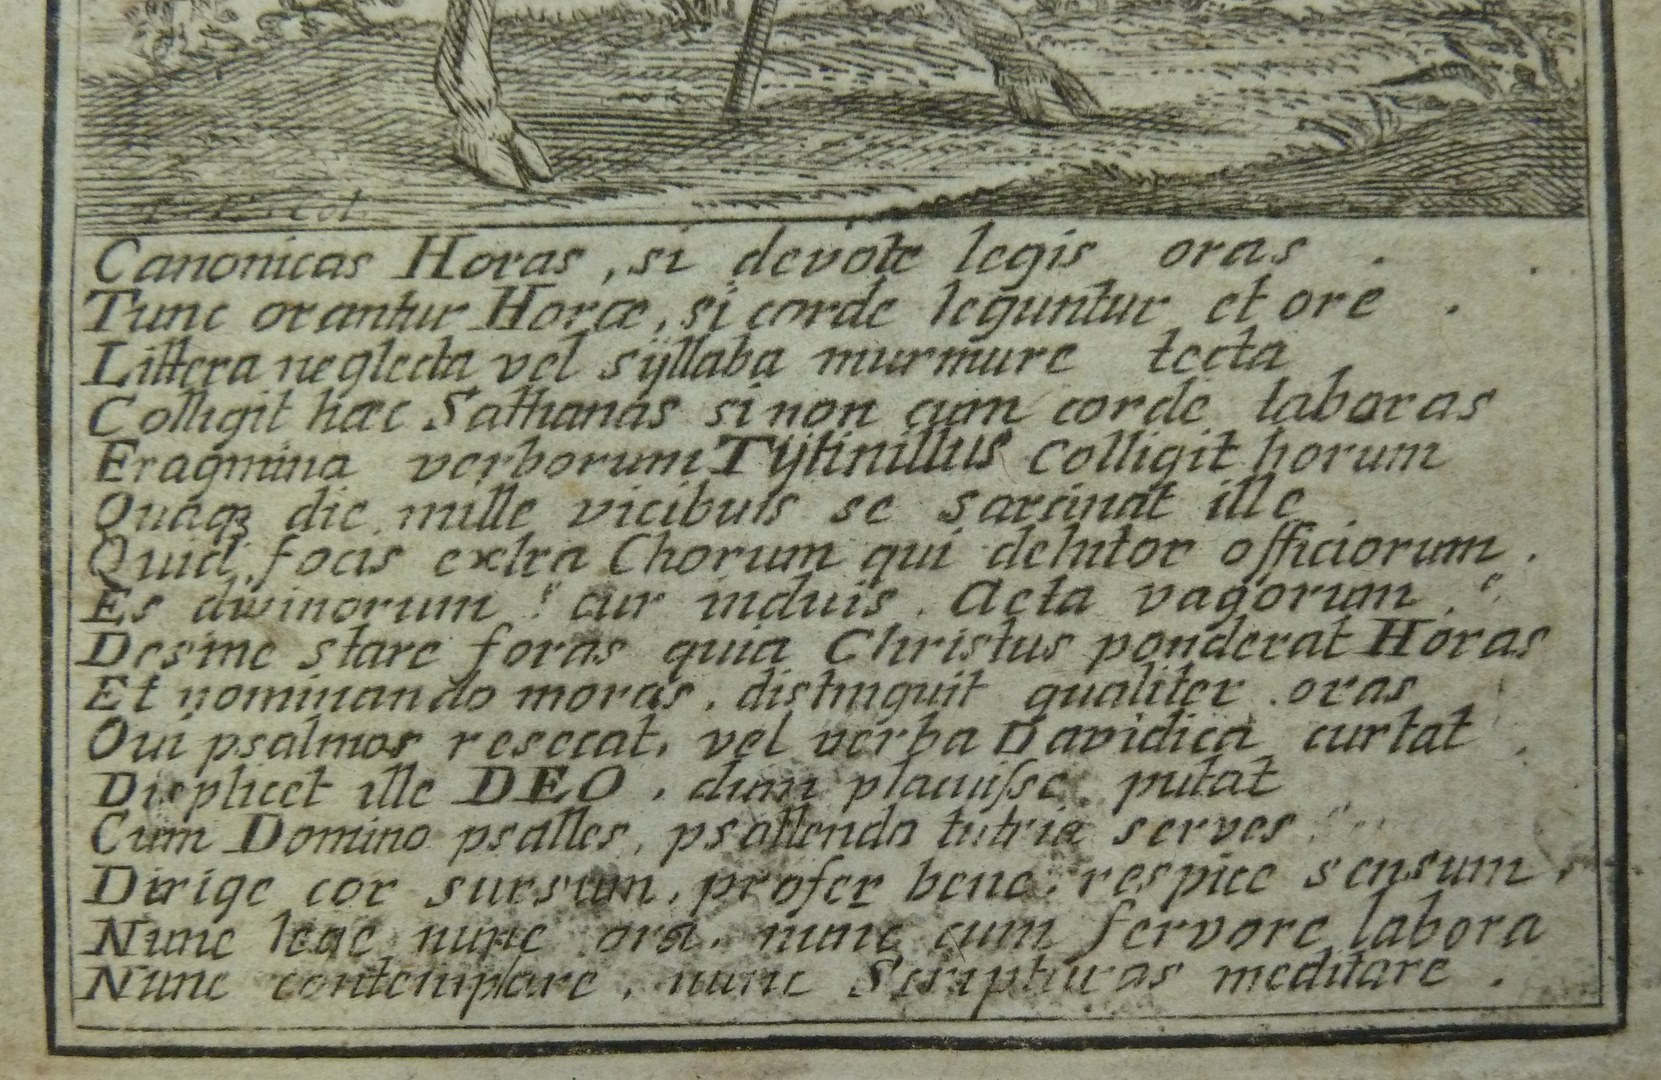 Canonicas Horas, si devote legis oras .
Tunc orantur Horæ, si corde leguntur et ore .
Littera neglecta vel sÿllaba murmure tecta
Colligit hæc Sathanas si non cum corde laboras
Eragmina verborum Tÿtinillus Colligit horum
Quaqz die mille vicibus se sarcinat ille
Quid focis extra Chorum qui debitor officiorum .
Es divinorum ? cur induis . Acta vagorum . ?
Desine stare foras quia Christus ponderat Horas
Et nominando moras . distinguit qualiter oras
Qui psalmos resecat, vel verba Davidica curtat .
Displicet ille DEO . dum placuisse . putat
Cum Domino psalles, psallendo serves
Dirige cor sursum . profer bene . respice sensum .
Nunc lege nunc ora . nunc cum fervore labora
Nunc contemplare . nunc Scripturas meditare .